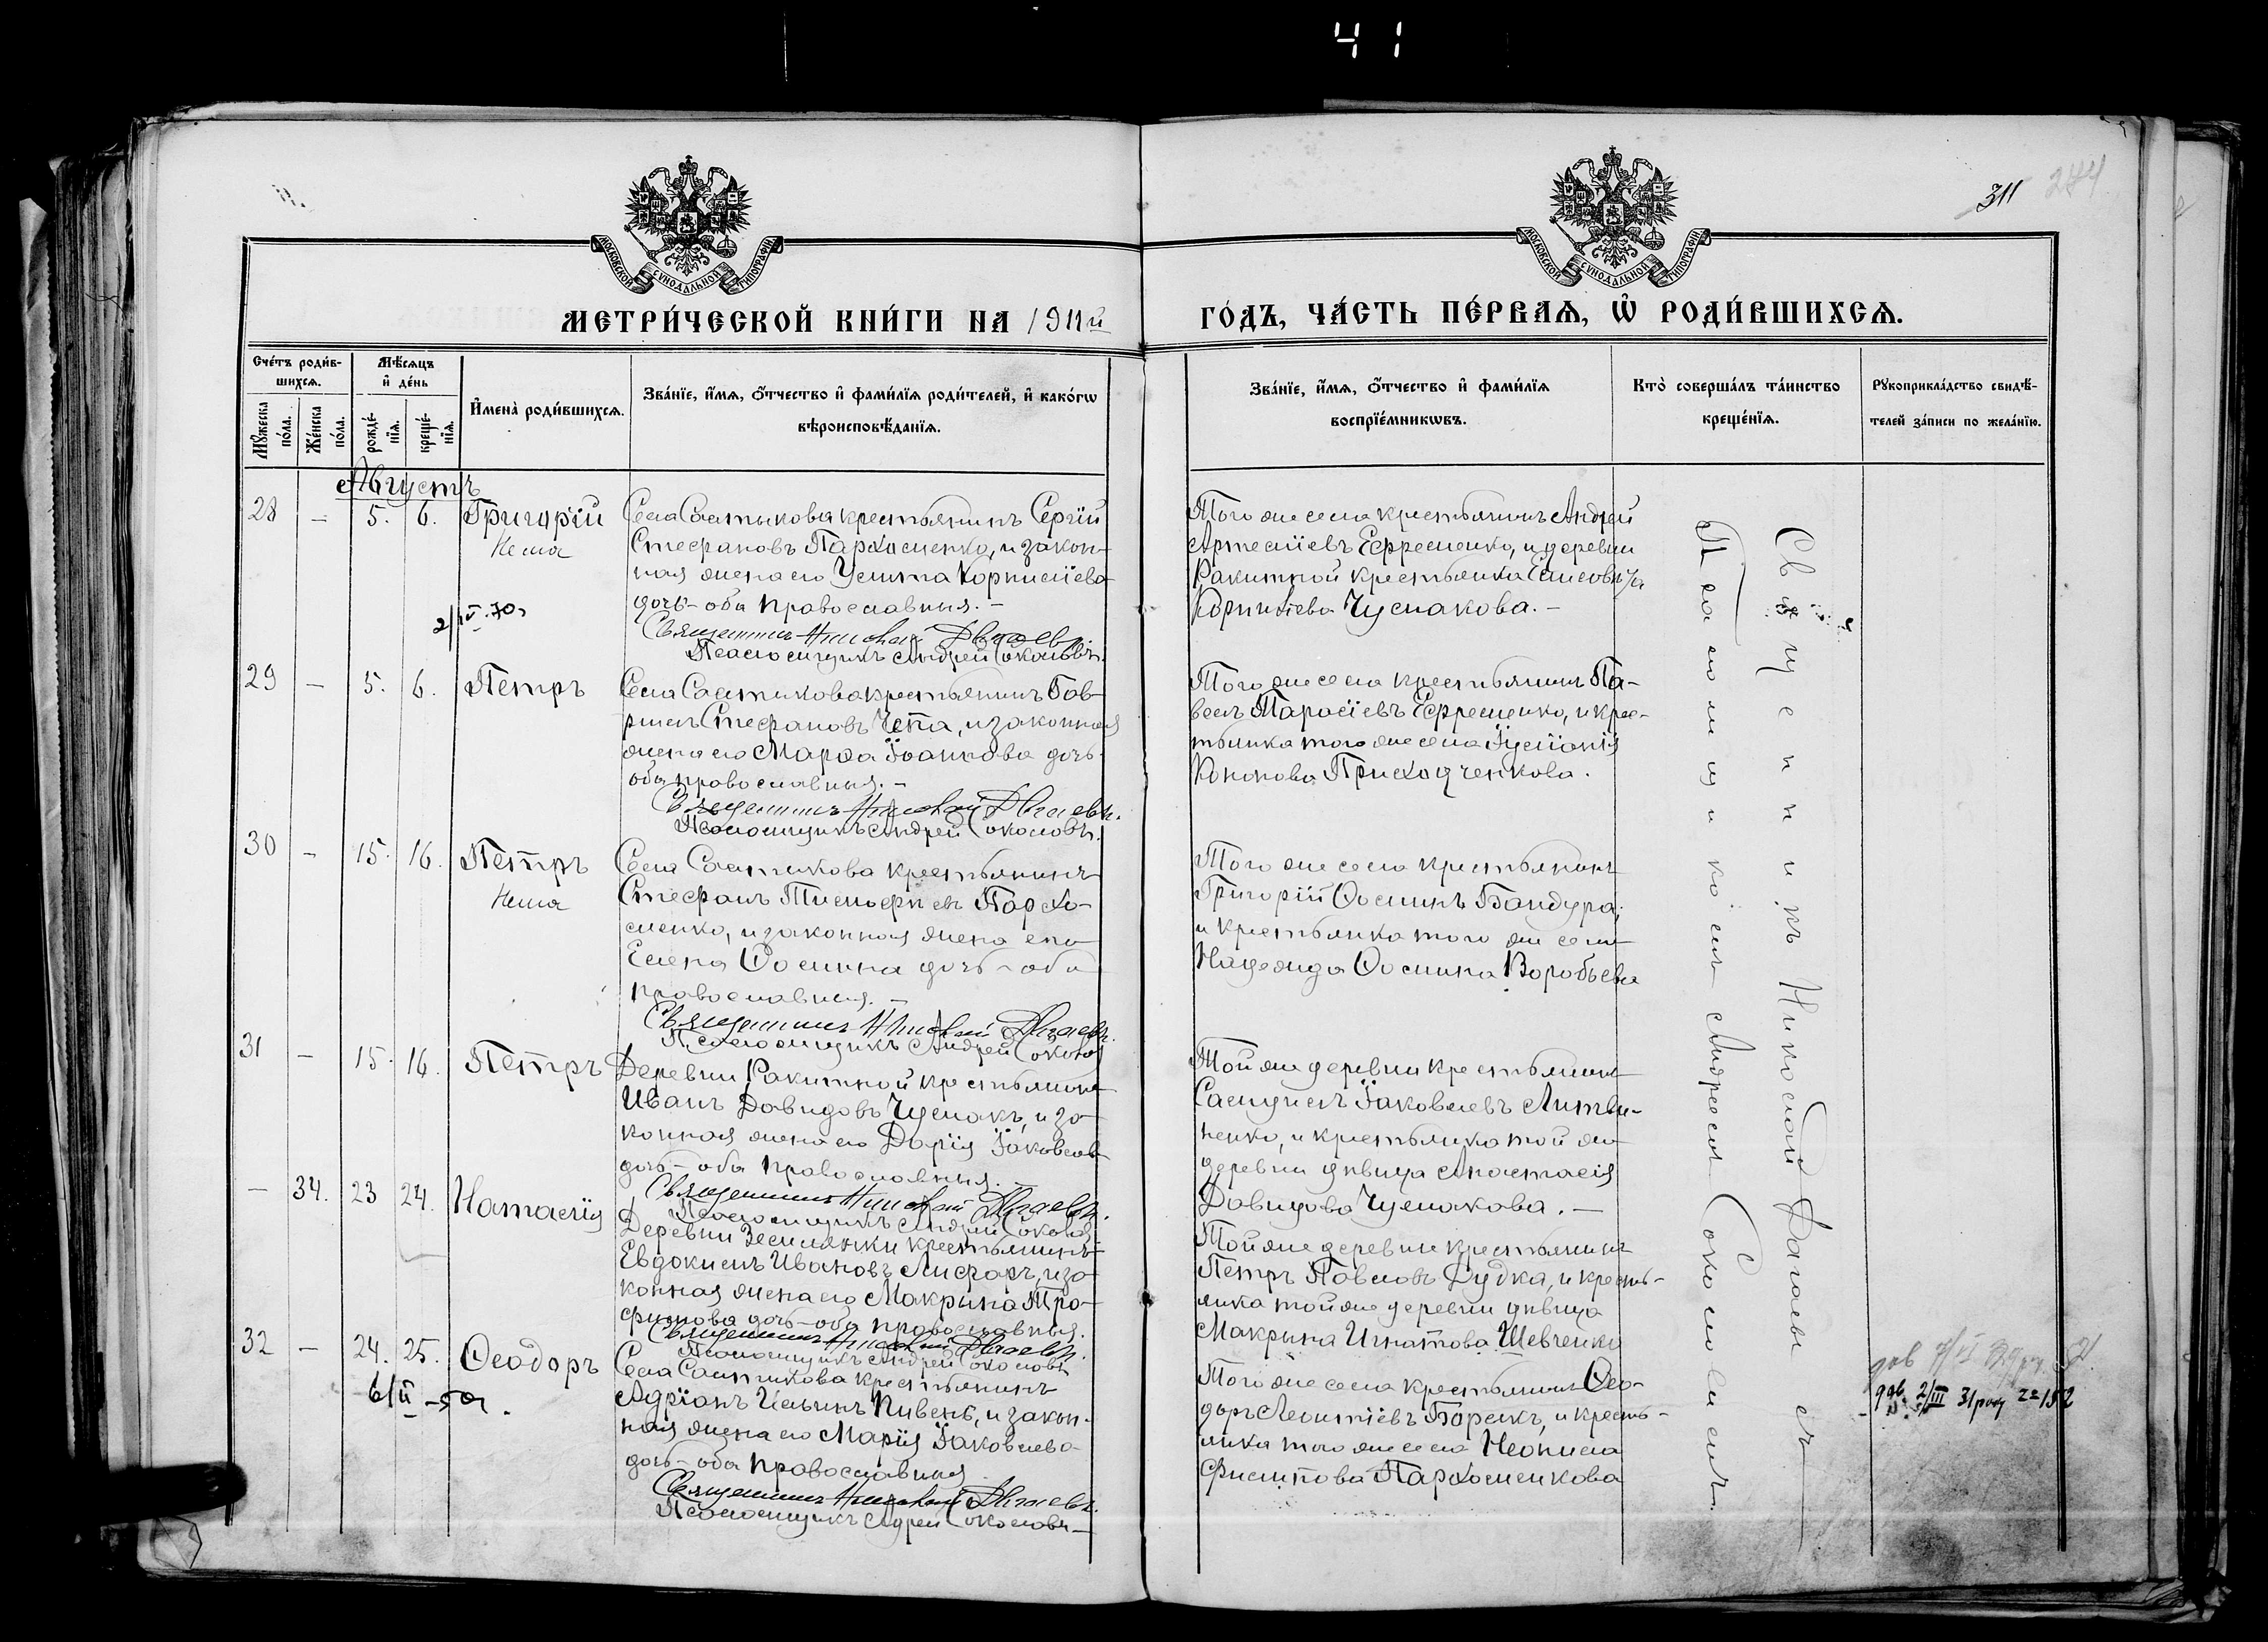 41
311
284
МОСКОВСКОЙ СѴНОДАЛЬНОЙ ТИПОГРАФІИ
МОСКОВСКОЙ СѴНОДАЛЬНОЙ ТИПОГРАФІИ
МЕТРИ́ЧЕСКОЙ КНИ́ГИ НА 1911й
ГО́ДЪ, ЧА́СТЬ ПЕ́РВАѦ, Ѡ҆ РОДИ́ВШИХСѦ.
Сче́тъ роди́в-
шихсѧ.
Мꙋ́жеска по́ла.
Же́нска по́ла.
Мѣ́сѧцъ
и҆ де́нь
рожде́-
нїѧ.
креще́-
нїѧ.
И҆мена̀ роди́вшихсѧ.
Зва́нїе, и҆́мѧ, ѻ҆́тчество и҆ фами́лїѧ роди́телей, и҆ како́гѡ
вѣроисповѣ́данїѧ.
Зва́нїе, и҆́мѧ, ѻ҆́тчество и҆ фами́лїѧ
воспрїе́мникѡвъ.
Кто̀ соверша́лъ та́инство
креще́нїѧ.
Рꙋкоприкла́дство свидѣ́-
телей за́писи по жела́нїю.
Августъ
28 — 5. 6. Григорій
Села Салтыкова крестьянинъ Сергій
Стефановъ Пархоменко, и закон-
ная жена его Улита Корнилiева
дочь - оба православныя. —
Священникъ Николай
Псаломщикъ Андрей Соколовъ.
Того же села крестьянинъ Андрей
Артемiевъ Ефременко, и деревни
Ракитной крестьянка
Чумакова. —
29 — 5. 6. Петръ
Села Салтыкова крестьянинъ Гав-
рiилъ Стефановъ Чепа, и законная
жена его Марѳа Iоаннова дочь-
оба православныя. —
Священникъ Николай
Псаломщикъ Андрей Соколовъ.
Того же села крестьянинъ Па-
велъ Тарасiевъ Ефременко, и крес-
тьянка того же села Iулiанiя
Кононова Приходченкова.
30 — 15. 16. Петръ
Села Салтыкова крестьянинъ
Стефанъ Тимофiевъ Пархо-
менко, и законная жена его
Елена Ѳомина дочь - оба
православныя. —
Священникъ Николай
Псаломщикъ Андрей Соколов
Того же села крестьянинъ
Григорiй Ѳоминъ Бандура,
и крестьянка того же села
Надежда Ѳомина Воробьева
31 — 15. 16. Петръ
Деревни Ракитной крестьянинъ
Иванъ Давидовъ Чумакъ, и за-
конная жена его Дарiя Iаковлева
дочь - оба православныя. —
Священникъ Николай
Псаломщикъ Андрей Соколовъ
Той же деревни крестьянинъ
Самуилъ Iаковлевъ Литви-
ненко, и крестьянка той же
деревни дѣвица Анастасiя
Давидова Чумакова. —
— 34. 23 24. Наталiя
Деревни Землянки крестьянинъ
Евдокимъ Ивановъ Лифаръ, и за-
конная жена его Макрина Тро-
фимова дочь - оба православныя.
Священникъ Николай
Псаломщикъ Андрей Соколовъ
Той же деревни крестьянинъ
Петръ Павловъ Дудка, и кресть-
янка той же деревни дѣвица
Макрина Игнатова Шевченко
32 — 24. 25. Ѳеодоръ
Села Салтыкова крестьянинъ
Адрiанъ Ильинъ Пивень, и закон-
ная жена его Марiя Iаковлева
дочь - оба православныя
Священникъ Николай
Псаломщикъ Андрей Соколовъ —
Того же села крестьянинъ Ѳео-
доръ Леонтiевъ Борсукъ, и кресть-
янка того же села Неонила
Филиппова Пархоменкова
Священникъ Николай
Псаломщикомъ Андреемъ Соколовымъ.